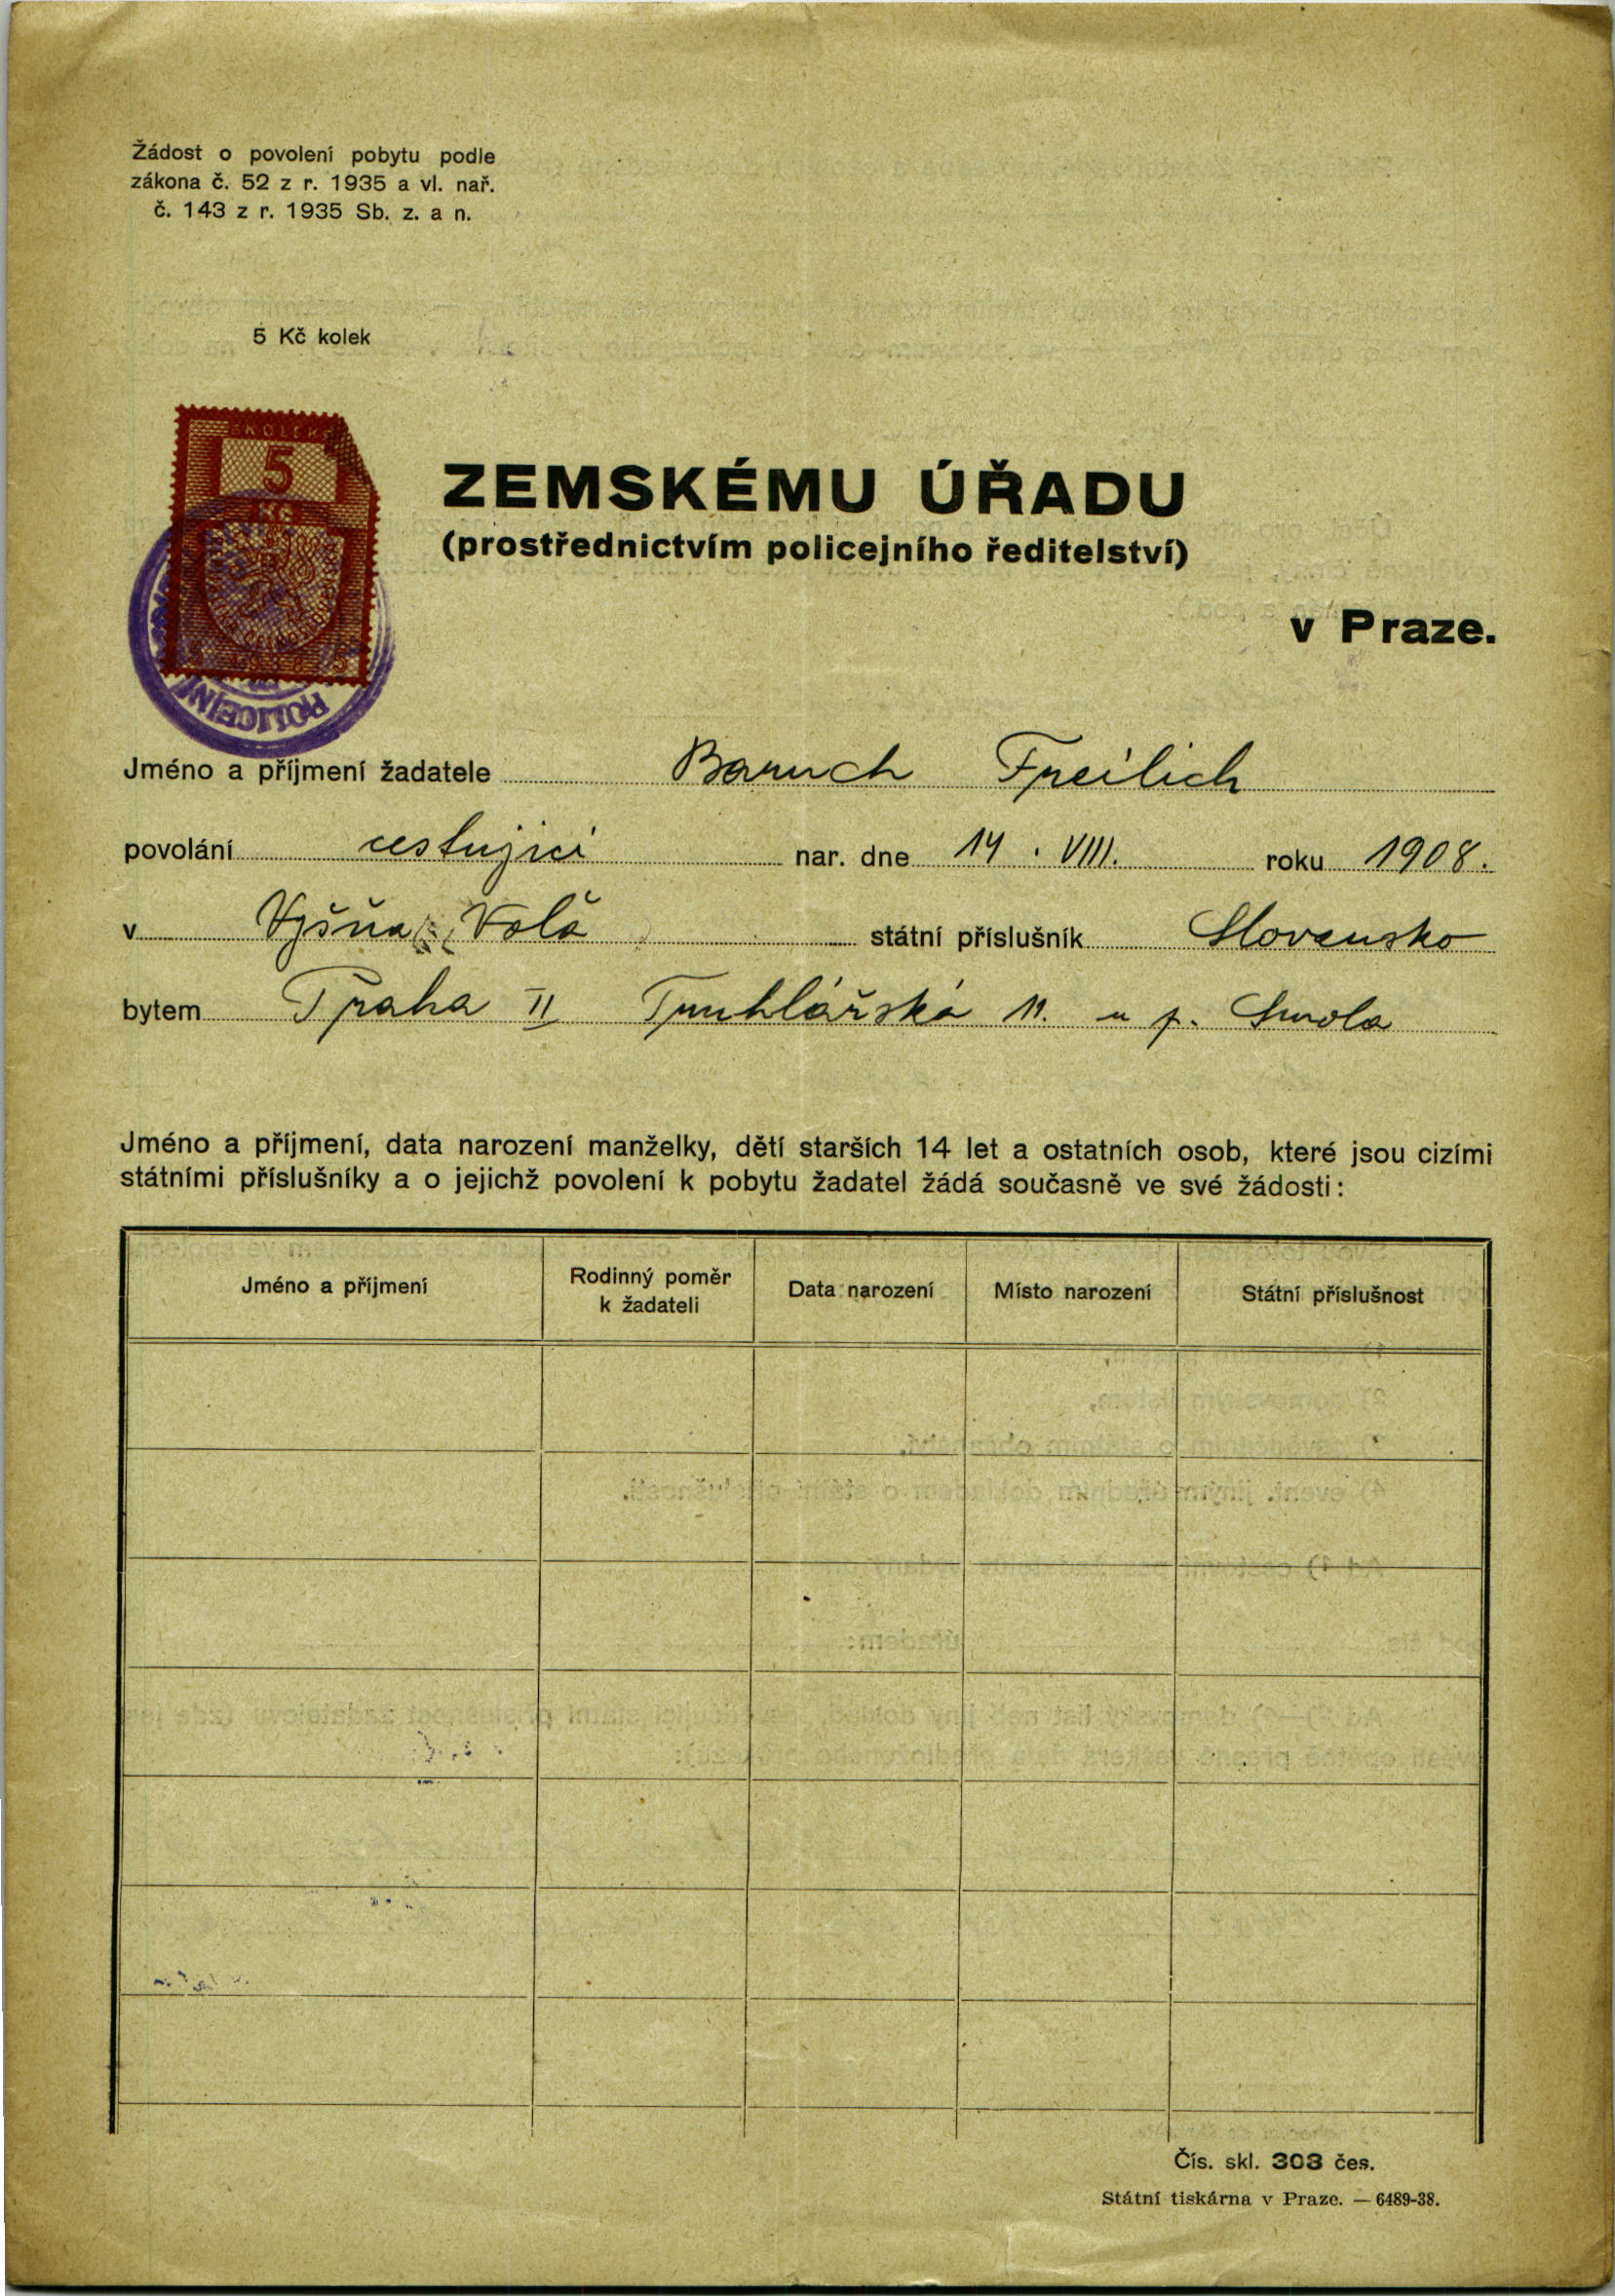 Žádost o povolení pobytu podle
zákona č. 52 z r. 1935 a vl. nař.
č. 143 z r. 1935 Sb. z. a n.
5 Kč kolek
KOLEK
5
Kč
POLICEJNÍ
ZEMSKÉMU ÚŘADU
(prostřednictvím policejního ředitelství)
v Praze.
Jméno a příjmení žadatele Baruch Freilich
povolání cestující nar. dne 14. VIII. roku 1908.
v Vyšňa Volă státní příslušník Slovensko
bytem Praha II Truhlářská 11. u p. Smola
Jméno a příjmení, data narození manželky, dětí starších 14 let a ostatních osob, které jsou cizími
státními příslušníky a o jejichž povolení k pobytu žadatel žádá současně ve své žádosti:
Jméno a příjmení
Rodinný poměr
k žadateli
Data narození
Místo narození
Státní příslušnost
Čís. skl. 303 čes.
Státní tiskárna v Praze. — 6489-38.